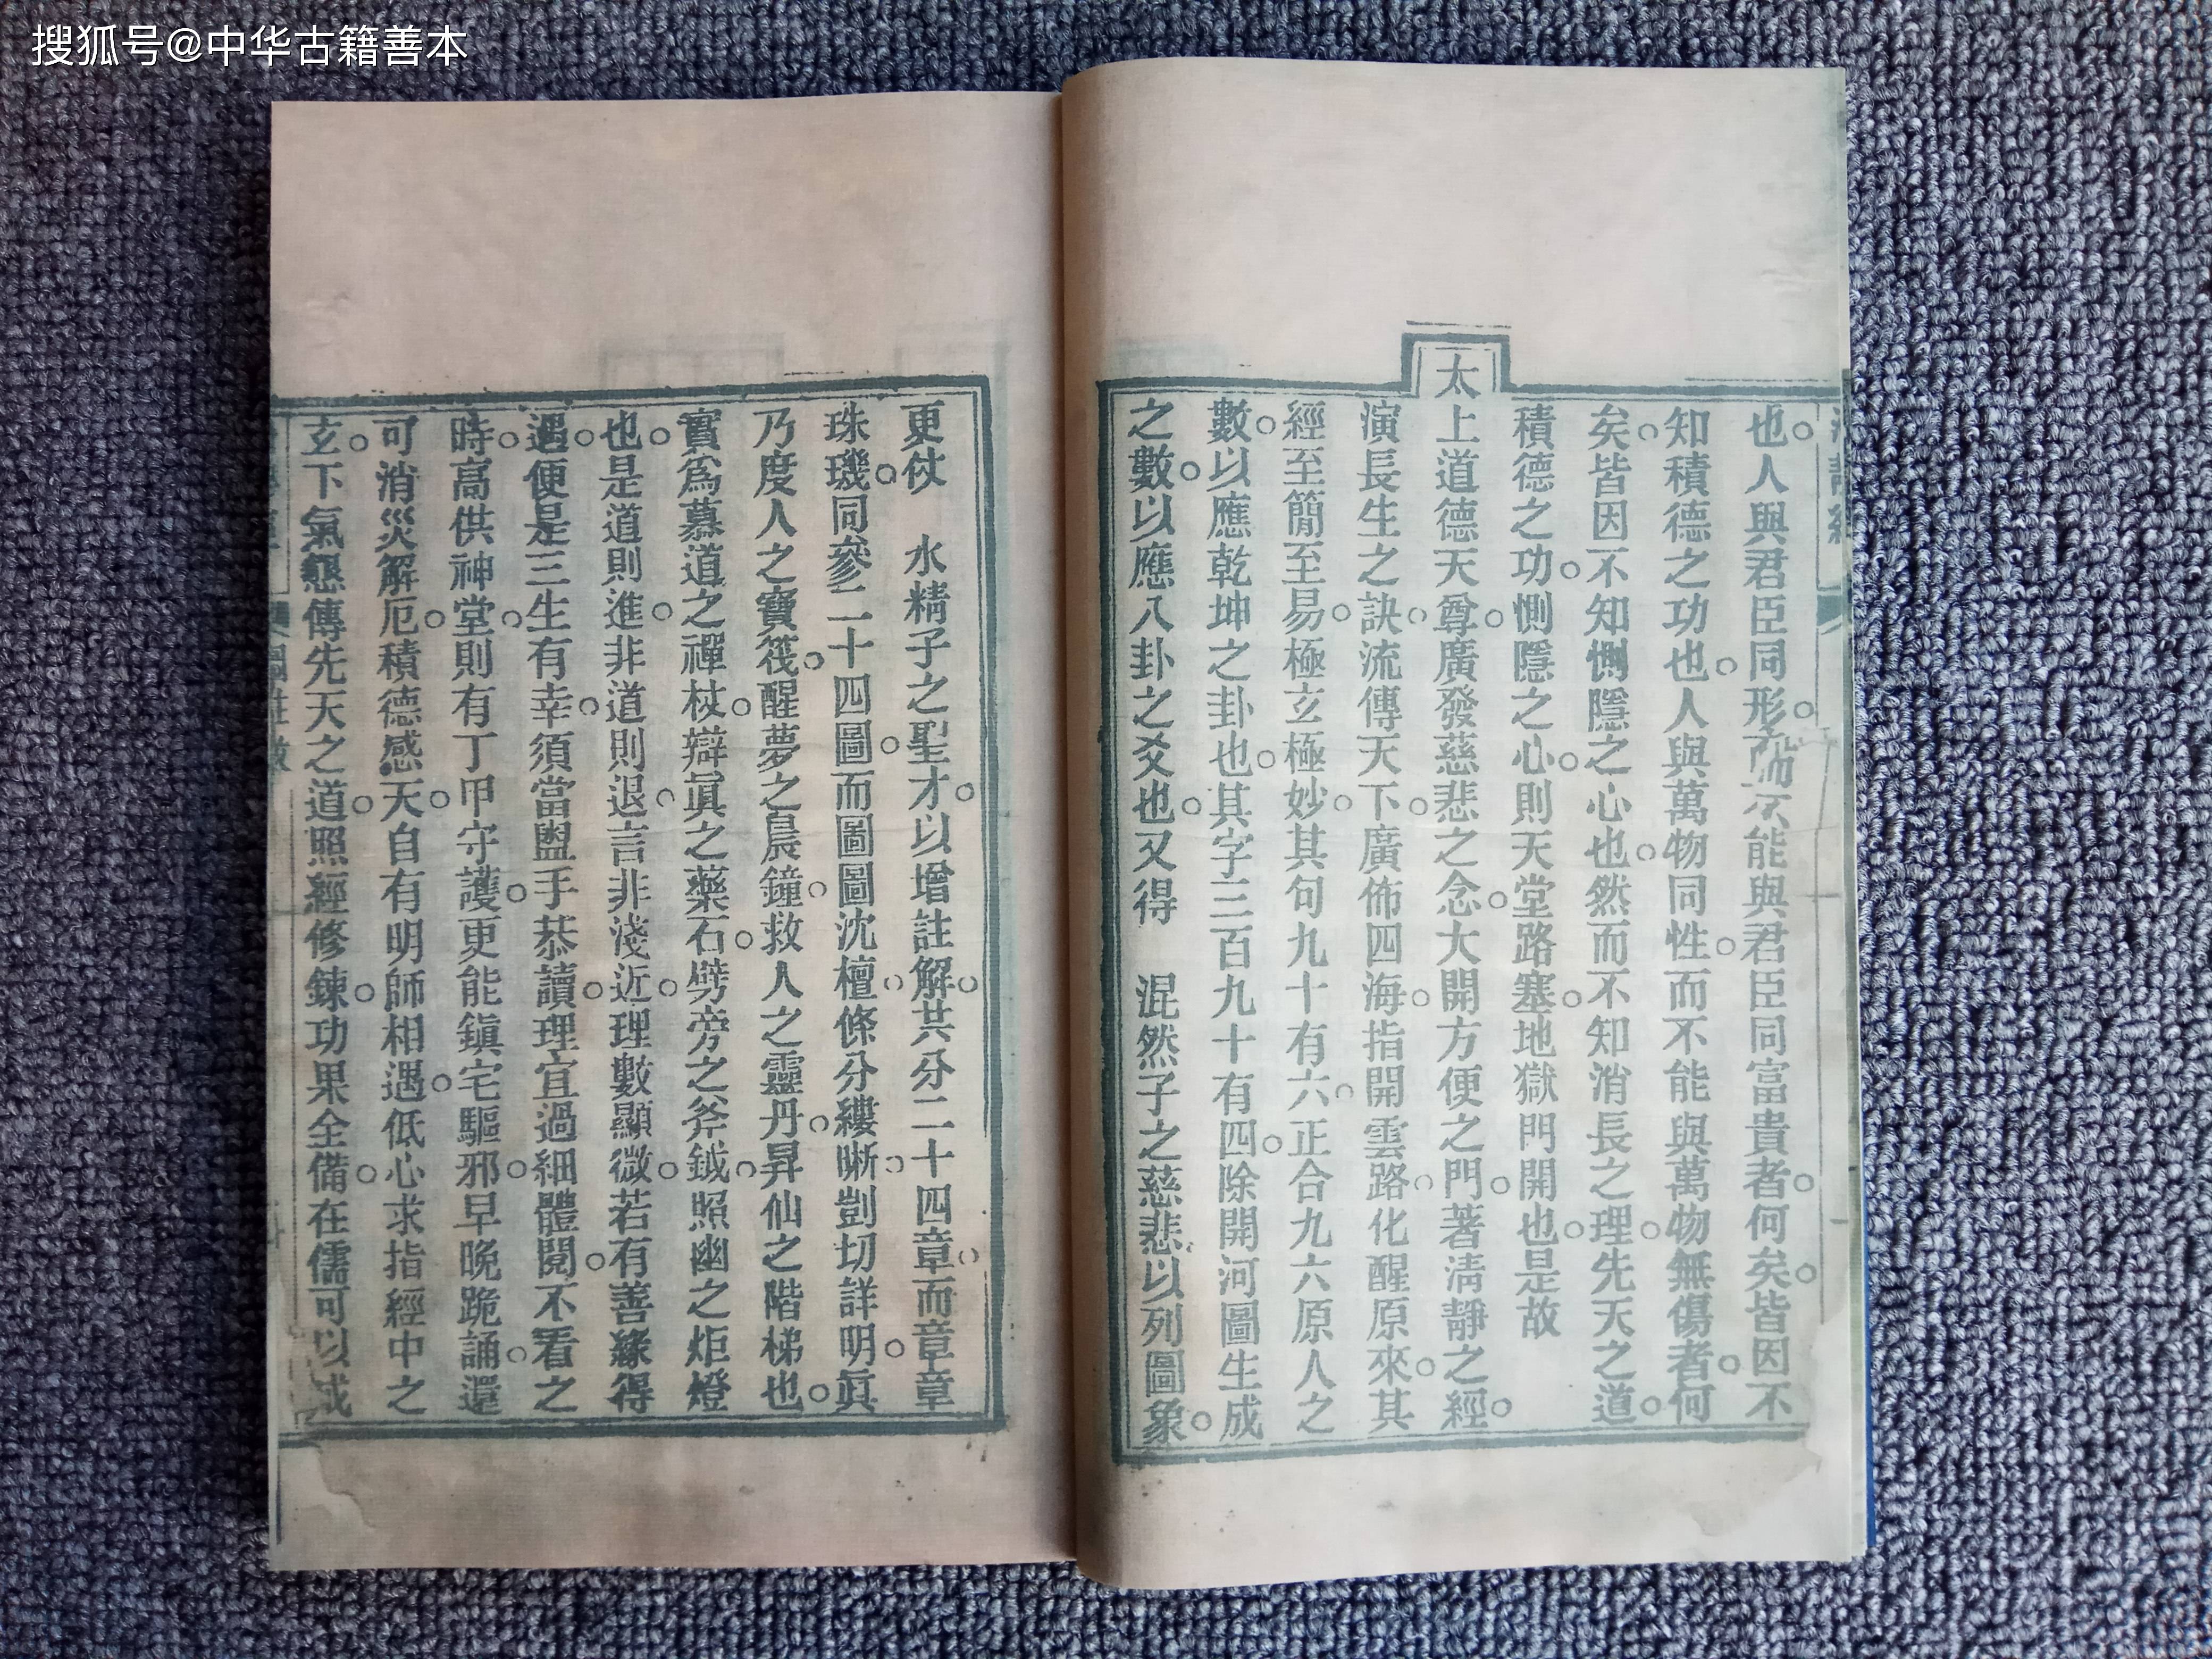 搜狐号@中华古籍善本
也。人與君臣同形。而不能與君臣同富貴者。何矣。皆因不
知積德之功也。人與萬物同性。而不能與萬物無傷者。何
矣。皆因不知惻隱之心也。然而不知消長之理。先天之道。
積德之功。惻隱之心。則天堂路塞。地獄門開也。是故
太上道德天尊。廣發慈悲之念。大開方便之門。著清靜之經。
演長生之訣。流傳天下。廣佈四海。指開雲路。化醒原來。其
經至簡至易。極玄極妙。其句九十有六。正合九六原人之
數。以應乾坤之卦也。其字三百九十有四。除開河圖生成
之數。以應八卦之爻也。又得 混然子之慈悲以列圖象。
更仗 水精子之聖才。以增註解。共分二十四章。而章章
珠璣。同參二十四圖。而圖圖沈檀。條分縷晰。剴切詳明。眞
乃度人之寶筏。醒夢之晨鐘。救人之靈丹。昇仙之階梯也。
實爲慕道之禪杖。辯眞之藥石。劈旁之斧鉞。照幽之炬燈
也。是道則進。非道則退。言非淺近。理數顯微。若有善緣得
遇。便是三生有幸。須當盥手恭讀。理宜過細體閱。不看之
時。高供神堂。則有丁甲守護。更能鎭宅驅邪。早晚跪誦。還
可消災解厄。積德感天。自有明師相遇。低心求指經中之
玄。下氣懇傳先天之道。照經修鍊。功果全備。在儒可以成